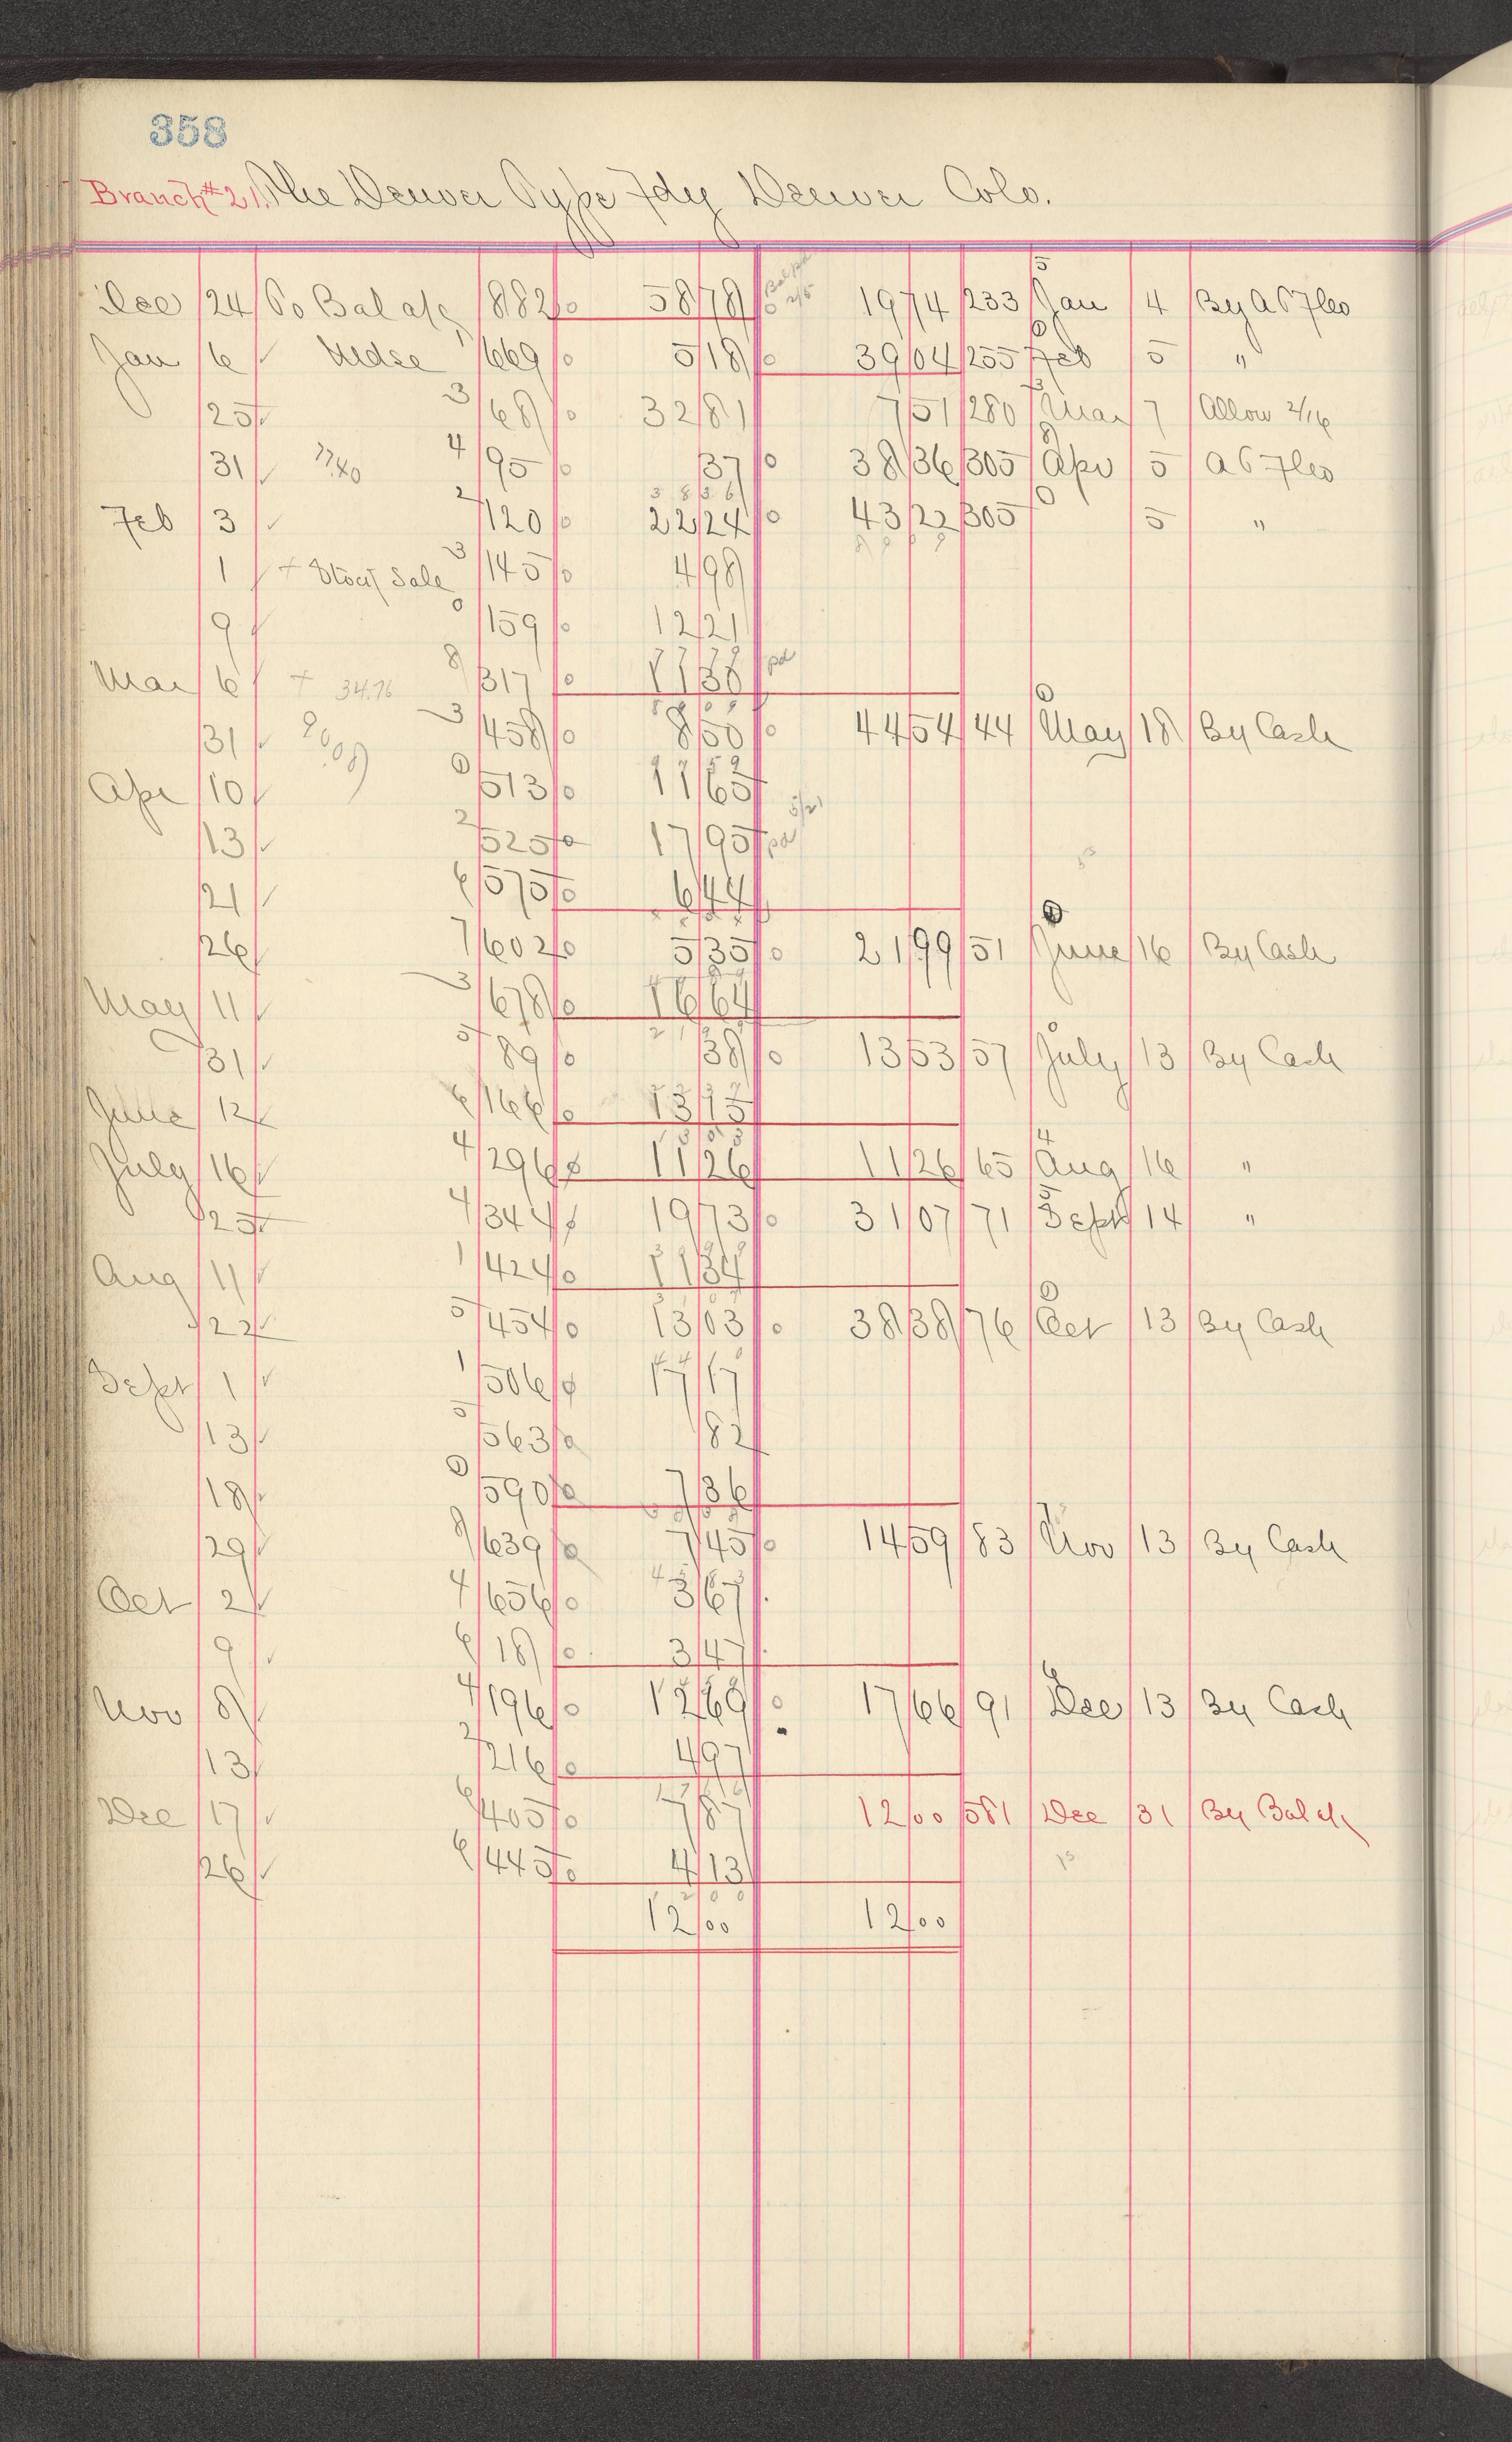 358
Branch #21. The Denver Type Fdy Denver Colo.
Dec 24 To Bal a/c 882 58 78 19 74 233 Jan 4 By
Jan 6 Mdse 669 5 18 39 04 255 Feb 5 "
25 68 32 81 7 51 280 Mar 7 Allow 2/16
31 95 37 38 36 305 Apr 5
3 8 3 6
Feb 3 120 22 24 43 22 305 5 "
1 + Stock Sale 145 4 98
9 159 12 21
Mar 6 + 34.76 317 pd
31 458 8 50 44 54 44 May 18 By Cash
Apr 10 513 11 65
13 525 17 95 pd
21 575 6 44
26 602 5 35 21 99 51 June 16 By Cash
May 11 678 16 64
31 89 38 13 53 57 July 13 By Cash
June 12 166 13 15
July 16 296 11 26 11 26 65 Aug 16 "
25 344 19 73 31 07 71 Sept 14 "
Aug 11 424 11 34
22 454 13 03 38 38 76 Oct 13 By Cash
Sept 1 506 17 17
13 563 82
18 590 7 36
29 639 7 45 14 59 83 Nov 13 By Cash
Oct 2 656 3 67
9 18 3 47
Nov 8 196 12 69 17 66 91 Dec 13 By Cash
13 216 4 97
Dec 17 405 7 87 12 00 581 Dec 31 By Bal
26 445 4 13
12 00 12 00